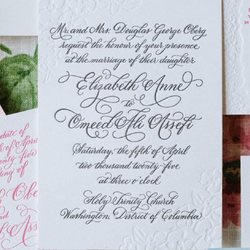 Mr. and Mrs. Douglas George Oberg
request the honour of your presence
at the marriage of their daughter
Elizabeth Anne
to
Omeed Ali Assefi
Saturday, the fifth of April
two thousand twenty-five
at three o'clock
Holy Trinity Church
Washington, District of Columbia